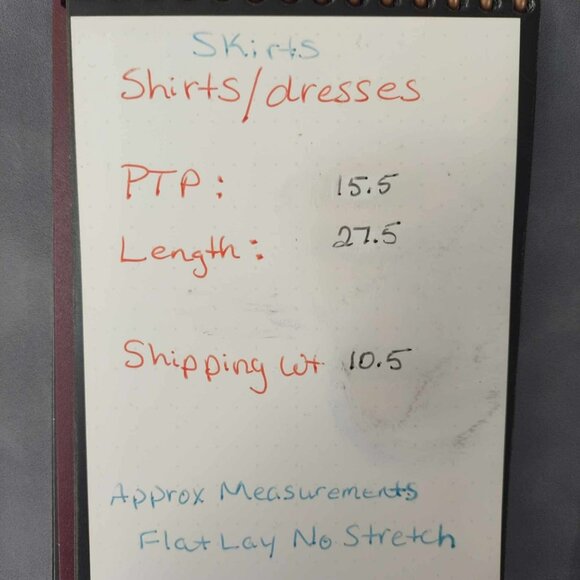 Skirts
Shirts/dresses
PTP: 15.5
Length: 27.5
Shipping Wt 10.5
Approx Measurements
Flat Lay No Stretch